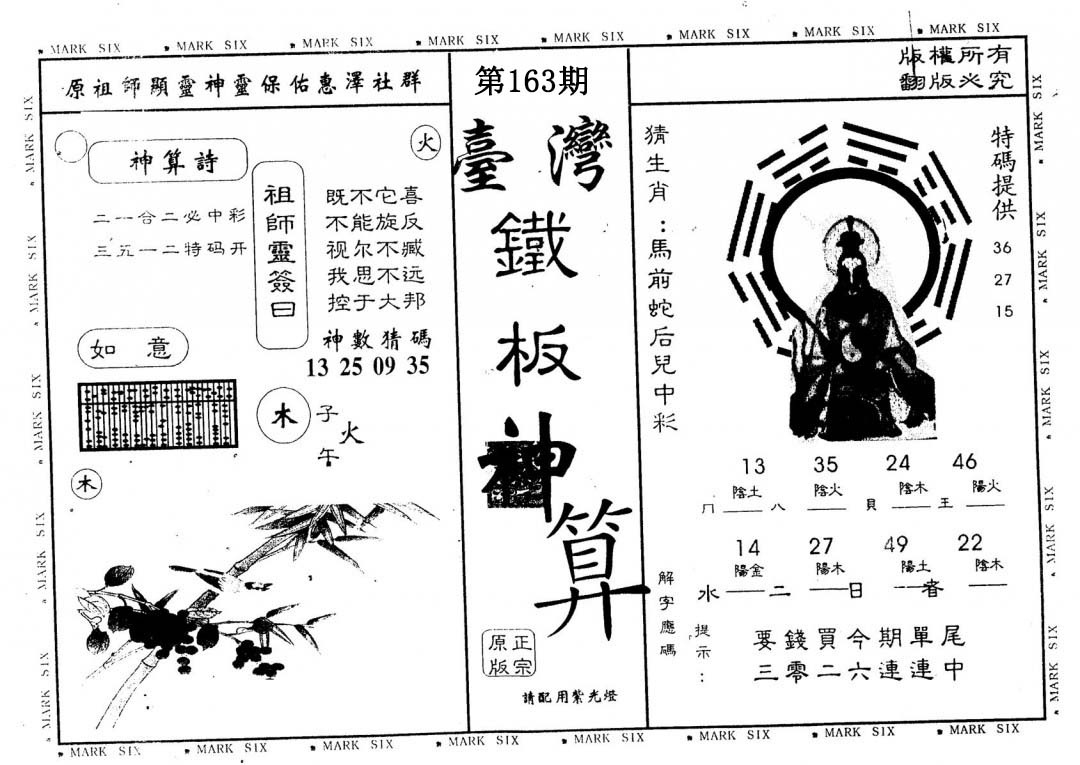 MARK SIX MARK SIX MARK SIX MARK SIX MARK SIX MARK SIX MARK SIX MARK SIX
原祖師顯靈神靈保佑惠澤社群
第163期
版權所有
翻版必究
火
神算詩
二一合二必中彩
三五一二特码开
祖師靈簽曰
既不它喜
不能旋反
视尔不臧
我思不远
控于大邦
神數猜碼
13 25 09 35
如意
木
子
火
午
木
臺灣
鐵
板
神
算
正宗
原版
請配用紫光燈
猜生肖：馬前蛇后兒中彩
特碼提供
36
27
15
13 35 24 46
陰土 陰火 陰木 陽火
冂 八 貝 王
14 27 49 22
陽金 陽木 陽土 陰木
水 二 日 者
解字應碼
提示：
要錢買今期單尾
三零二六連連中
MARK SIX MARK SIX MARK SIX MARK SIX MARK SIX MARK SIX MARK SIX MARK SIX
MARK SIX MARK SIX MARK SIX MARK SIX MARK SIX
MARK SIX MARK SIX MARK SIX MARK SIX MARK SIX